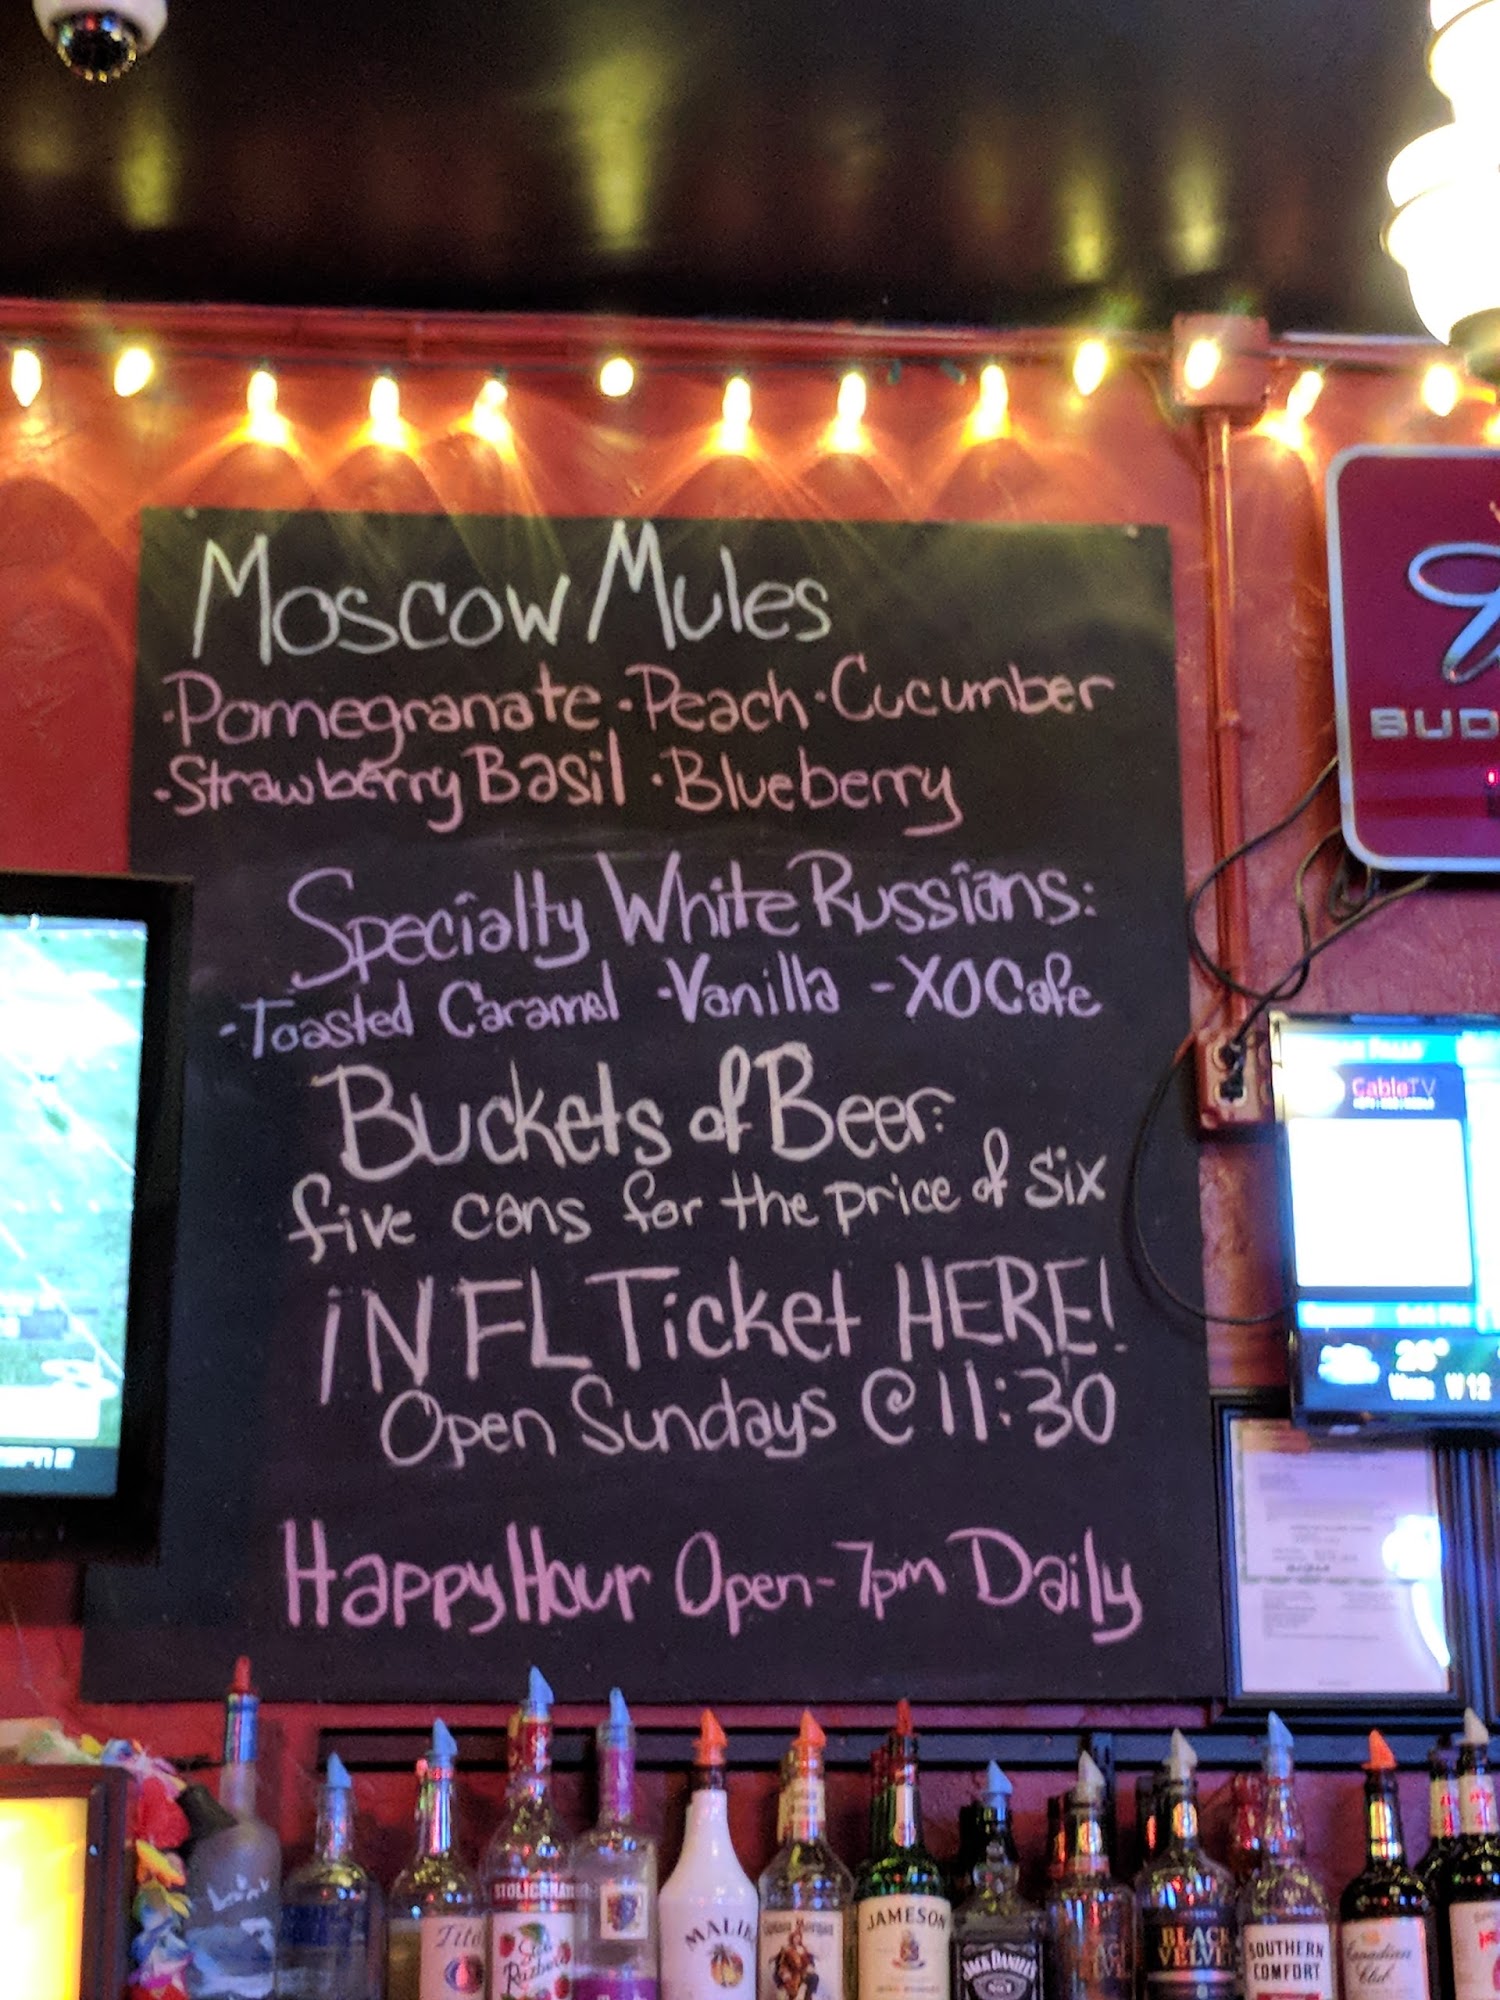 Moscow Mules
·Pomegranate ·Peach ·Cucumber
·Strawberry Basil ·Blueberry
Specialty White Russians:
-Toasted Caramel ·Vanilla -XO Cafe
Buckets of Beer:
five cans for the price of six
¡NFL Ticket HERE!
Open Sundays @ 11:30
Happy Hour Open-7pm Daily
BUD
CableTV
26°
W 12
Tito
STOLICHNA
Razberi
MALIB
Captain Morgan
JAMESON
JACK DANIEL'S
BLACK
VELVE
SOUTHERN
COMFORT
Canadian
Club